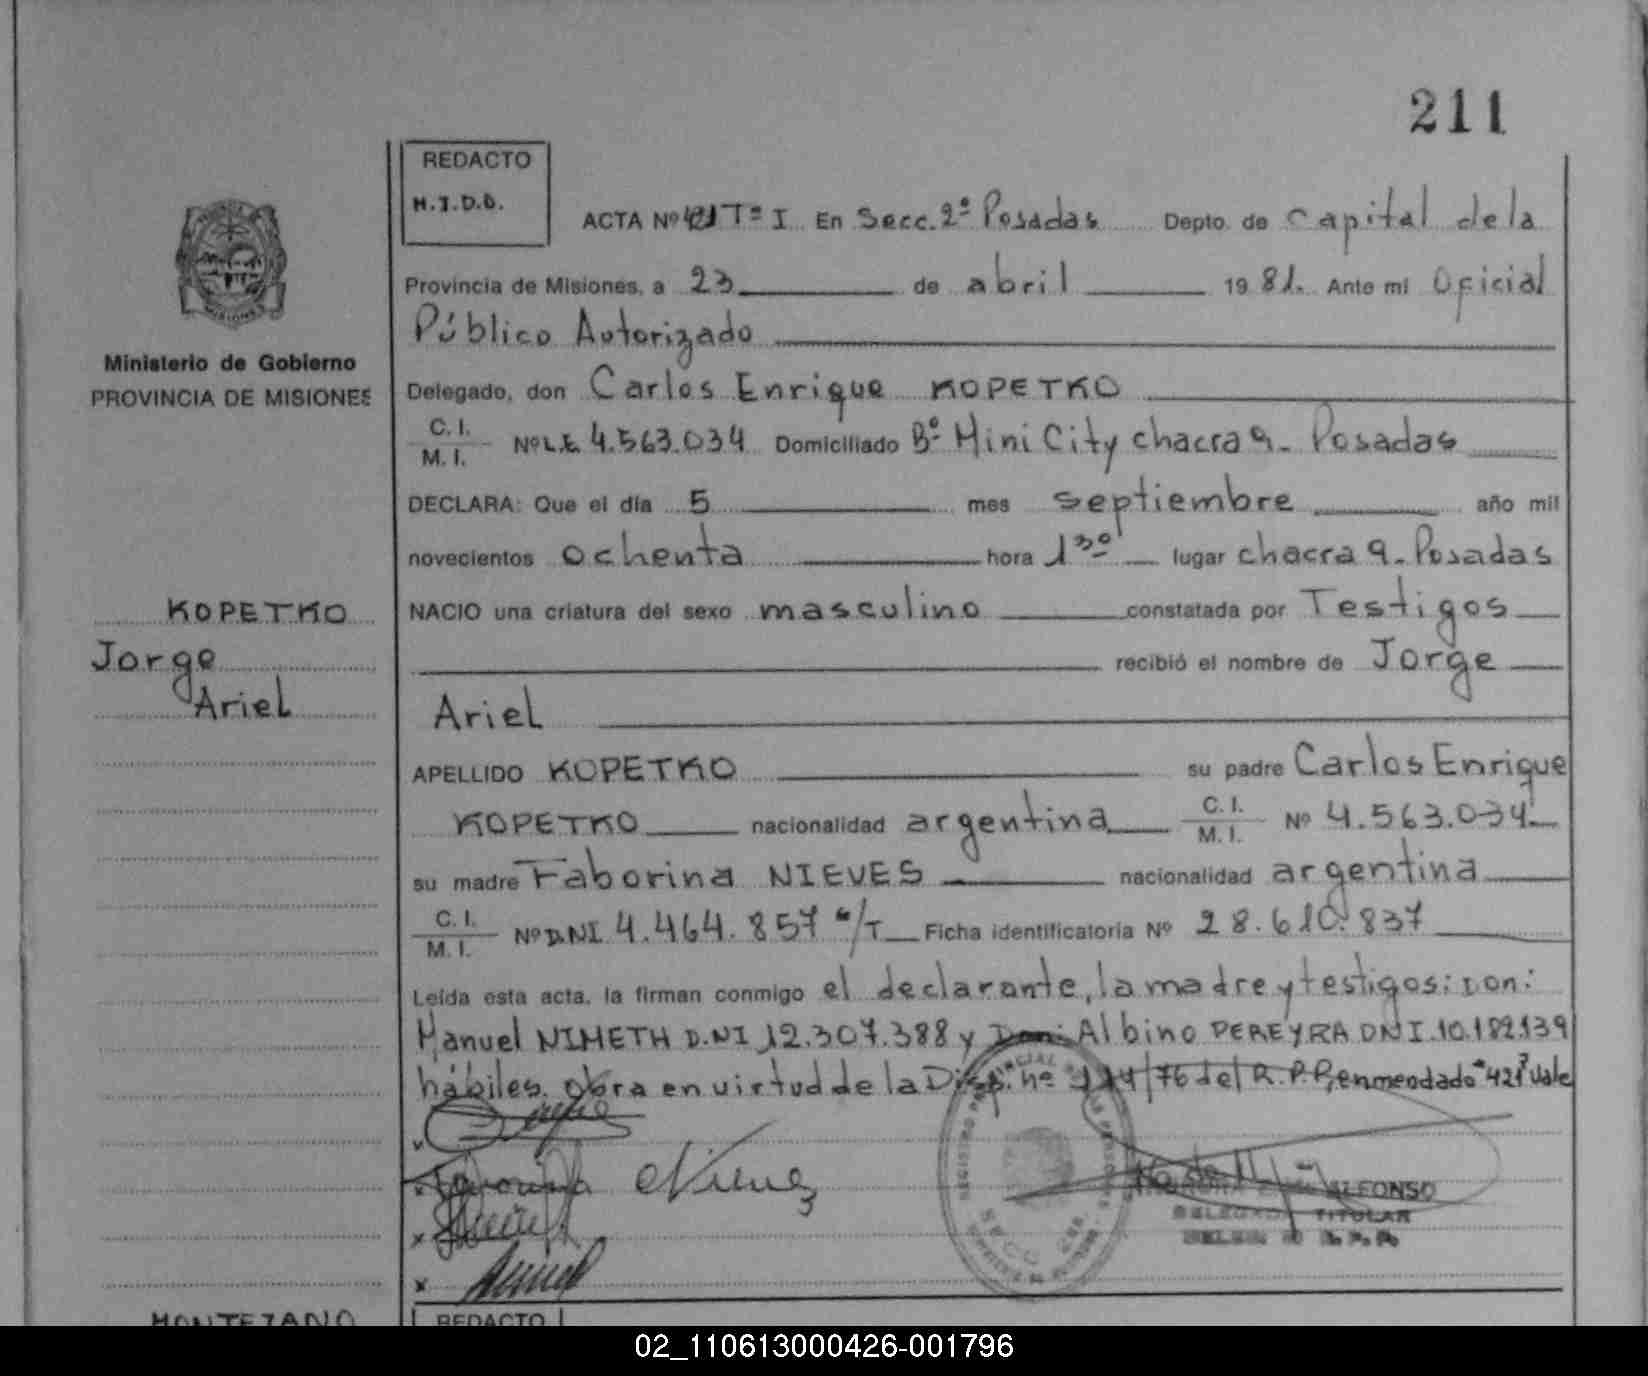 211
REDACTO
H.I.D.D.
ACTA Nº 421 Tº I En Secc. 2º Posadas Depto. de Capital de la
Provincia de Misiones, a 23 de abril 1981. Ante mi Oficial
Público Autorizado
Ministerio de Gobierno
PROVINCIA DE MISIONES
Delegado, don Carlos Enrique KOPETKO
C. I.
M. I. Nº L.E 4.563.034 Domiciliado Bº Mini City chacra 9. Posadas
DECLARA: Que el día 5 mes septiembre año mil
novecientos ochenta hora 1³⁰ lugar chacra 9. Posadas
NACIO una criatura del sexo masculino constatada por Testigos
recibió el nombre de Jorge
Ariel
KOPETKO
Jorge
Ariel
APELLIDO KOPETKO su padre Carlos Enrique
KOPETKO nacionalidad argentina C. I. M. I. Nº 4.563.034
su madre Faborina NIEVES nacionalidad argentina
C. I.
M. I. Nº D.NI 4.464.857 "/T Ficha identificatoria Nº 28.610.837
Leída esta acta, la firman conmigo el declarante, la madre y testigos: Don:
Manuel NIMETH D.NI 12.307.388 y Don: Albino PEREYRA DNI.10.182.139
hábiles. obra en virtud de la Disp. nº 114/76 del R.P.P, enmendado "421" Vale
ALFONSO
TITULAR
MONTEZANO
REDACTO
02_110613000426-001796